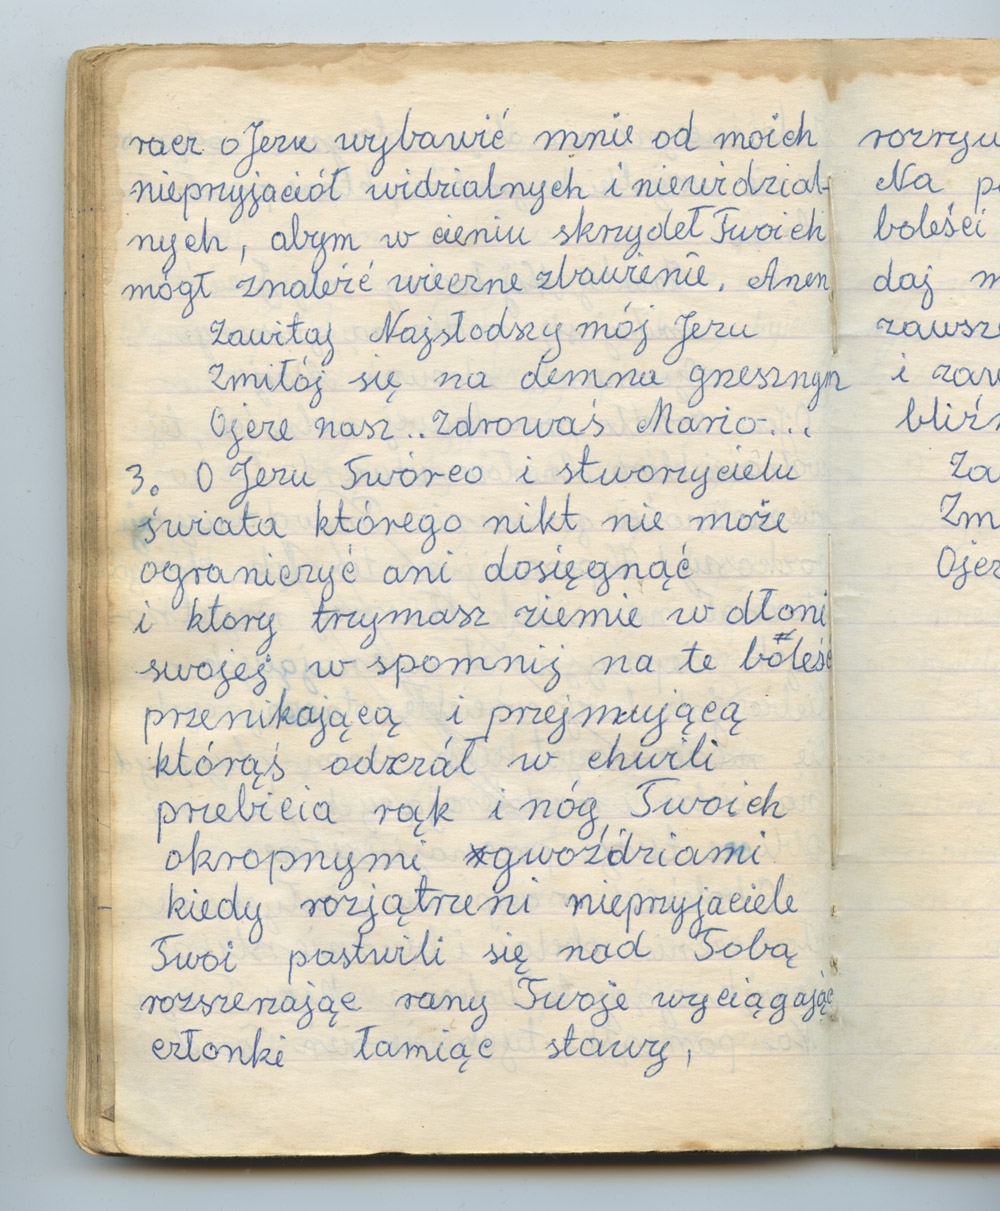 racz o Jezu wybawić mnie od moich
nieprzyjaciół widzialnych i niewidzial-
nych, abym w cieniu skrzydeł Twoich
mógł znaleźć wieczne zbawienie. Amen
Zawitaj Najsłodszy mój Jezu
Zmiłój się na demna grzesznym
Ojcze nasz... Zdrowaś Mario-...
3. O Jezu Twórco i stworzycielu
świata którego nikt nie może
ograniczyć ani dosięgnąć
i ktory trzymasz ziemie w dłoni
swojej w spomnij na te boleść
przenikającą i przejmującą
którąś odczół w chwili
przebicia rąk i nóg Twoich
okropnymi gwoździami
kiedy rozjątrzeni nieprzyjaciele
Twoi pastwili się nad Tobą
rozszerzając rany Twoje wyciągając
członki łamiąc stawy,
rozryw
Na p
boleści
daj m
zawsz
i zaw
bliźn
Za
Zm
Ojcz